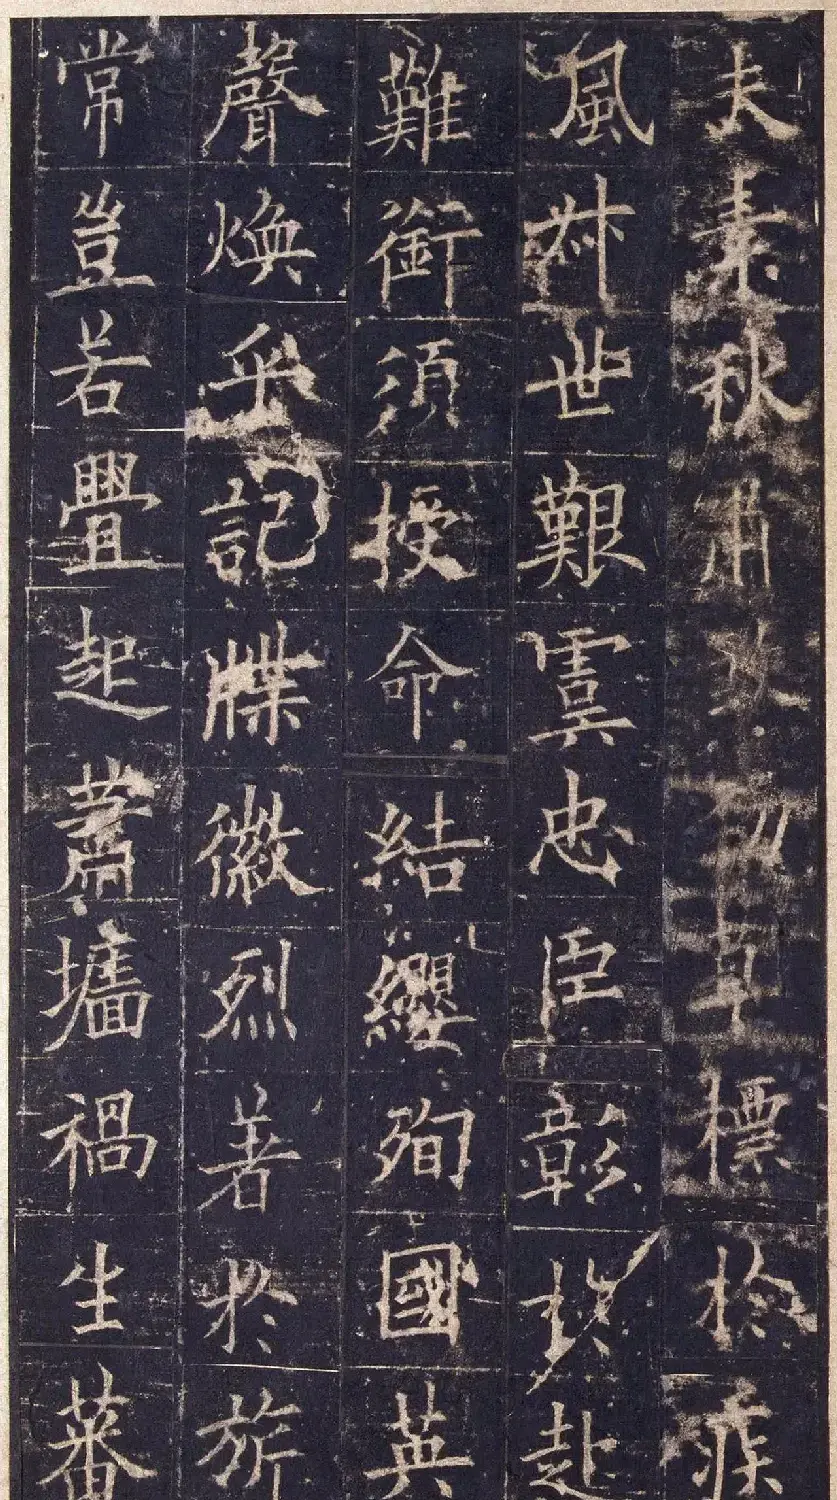 夫素秋肅勁草標於疾
風叔世艱虞忠臣彰於赴
難銜須授命結纓殉國英
聲煥乎記牒徽烈著於旂
常豈若舋起蕭墻禍生蕃